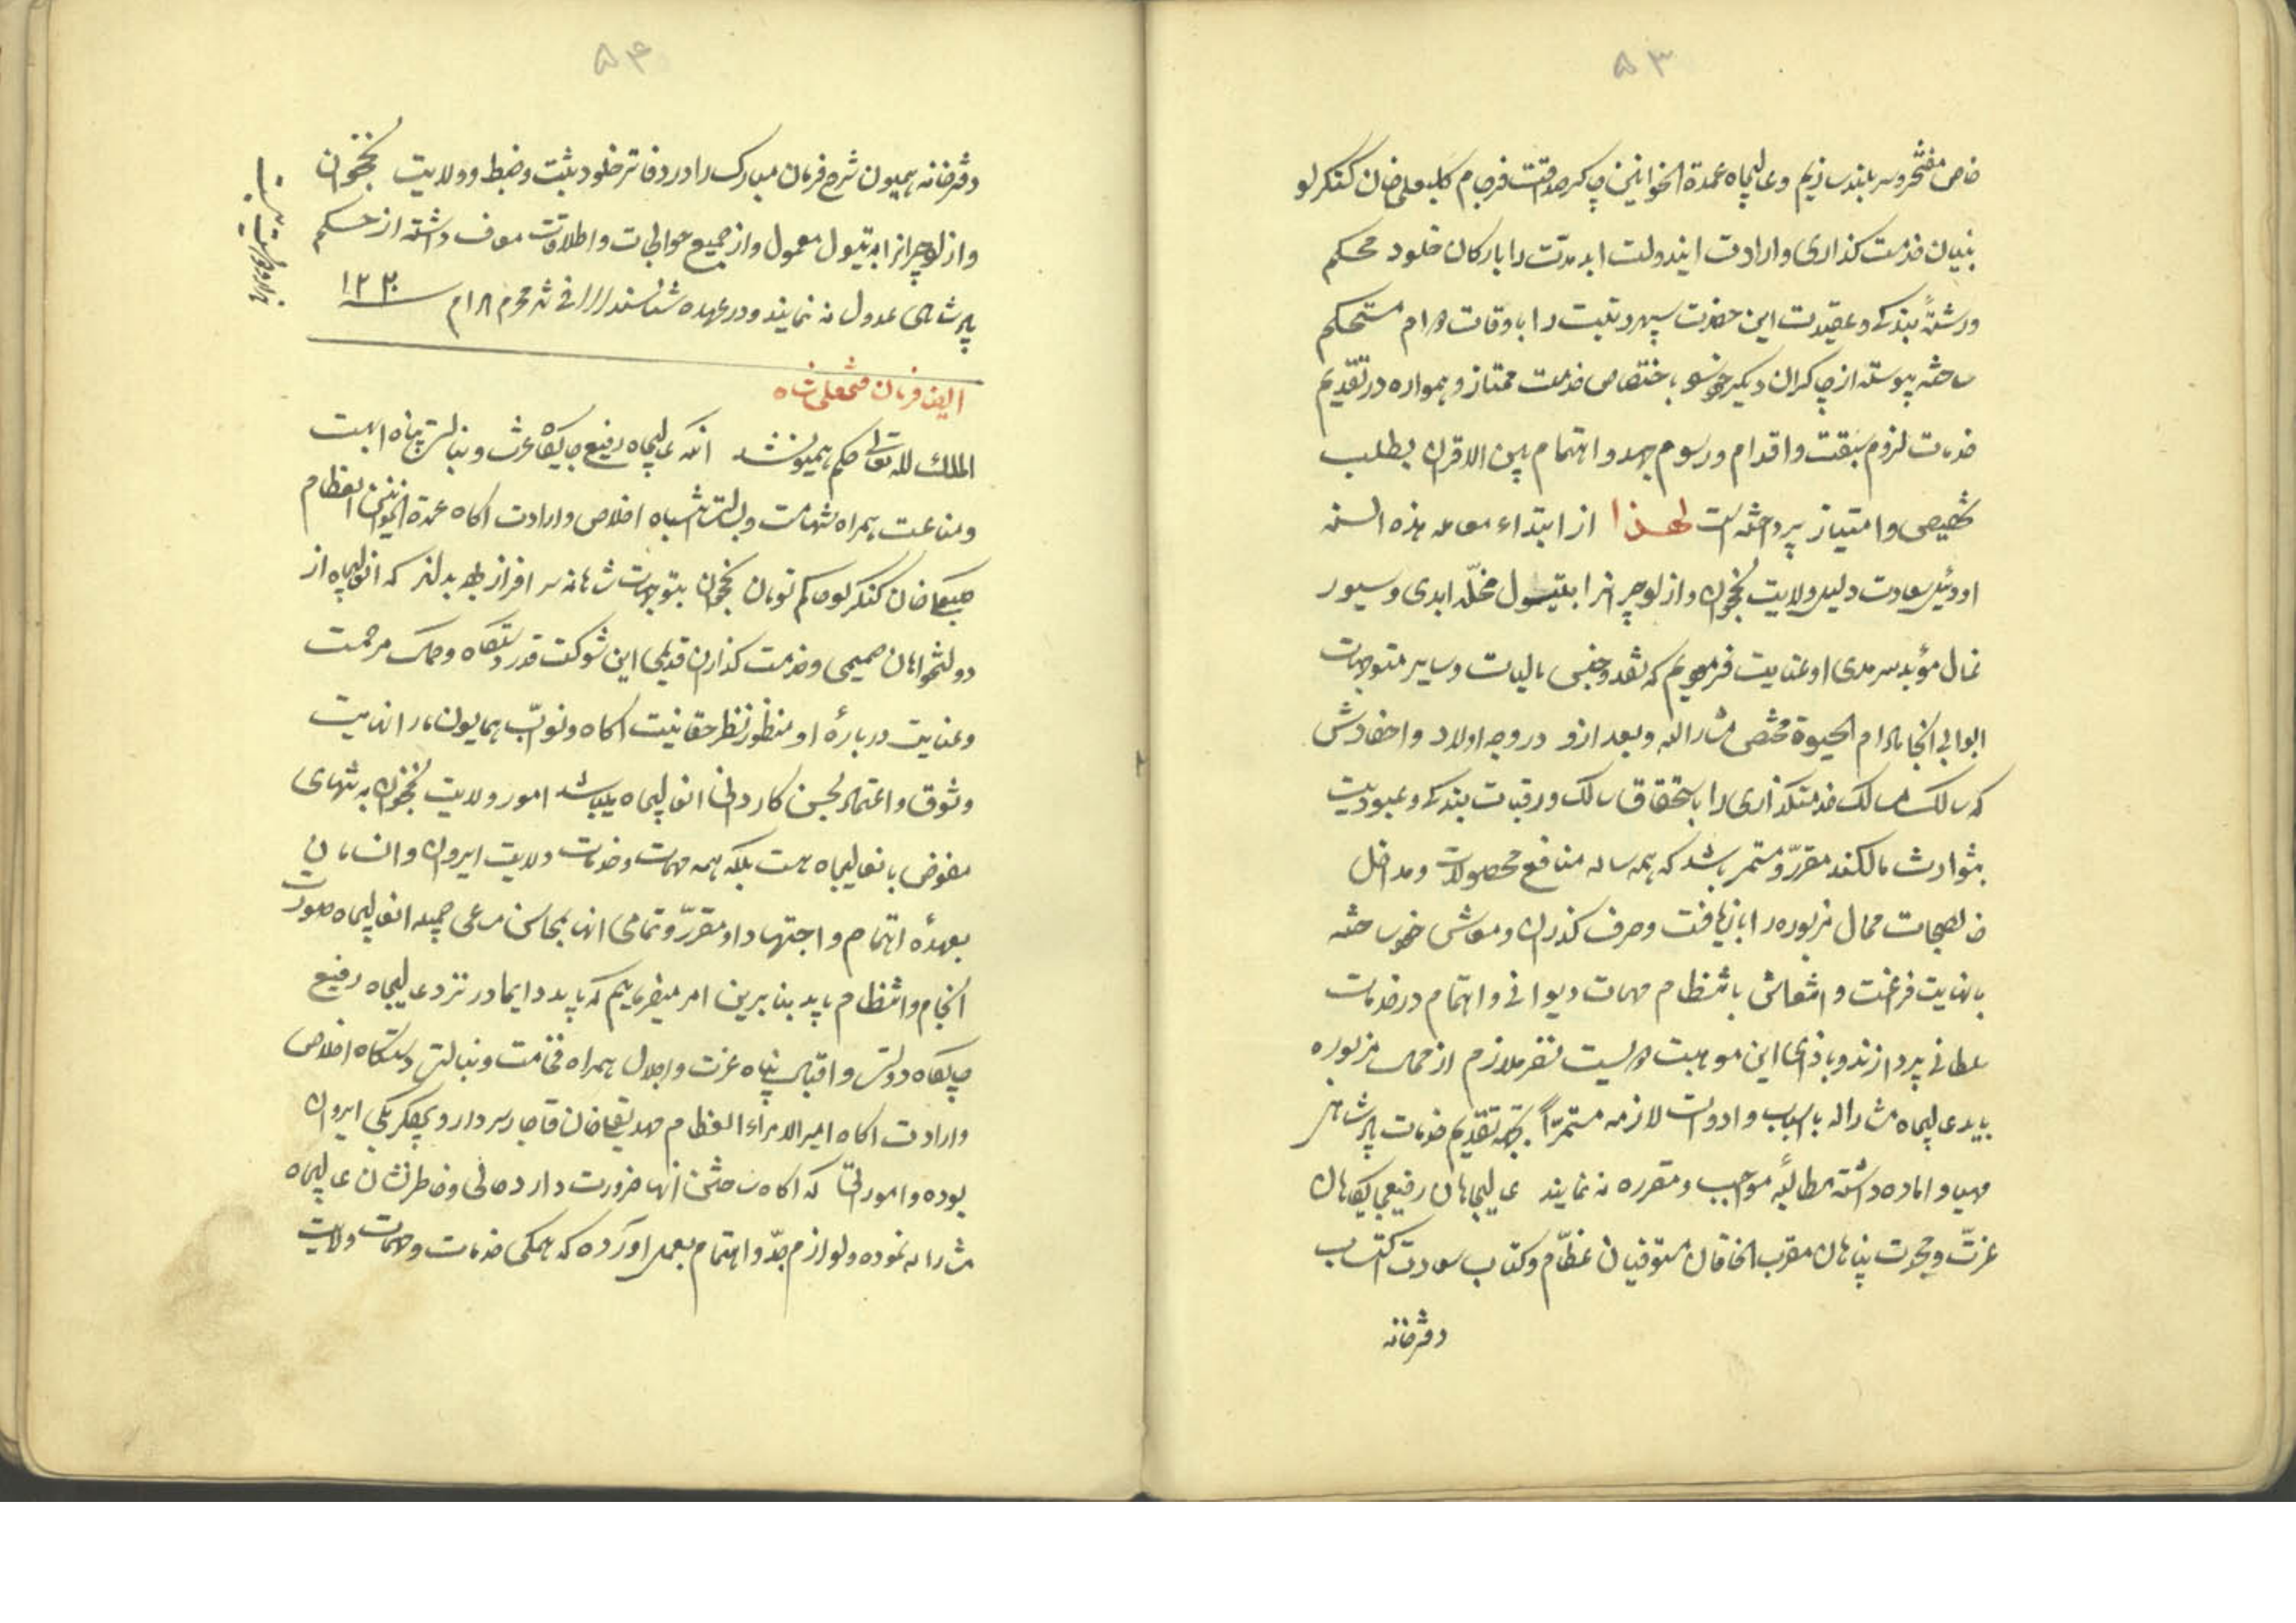 ۵۳
خاص مفتخر و سربلند سازیم و عالیجاه عمدة الخوانین چاکر صداقت فرجام کلبعلی خان کنکرلو
بنیان خدمت کذاری و ارادت ایندولت ابد مدت را بارکان خلود محکم
و رشتهٔ بندکی و عقیدت این حضرت سپهر رتبت را باوقات دوام مستحکم
ساخته پیوسته از چاکران دیکر خود باختصاص خدمت ممتاز و همواره در تقدیم
خدمات لزوم سبقت و اقدام و رسوم جهد و اهتمام بین الاقران بطلب
تخصیص و امتیاز پرداخته است لهذا از ابتداء معامله هذه السنه
اودئیل سعادت دلیل ولایت نخجوان و ازلوجر انرا بتیول مخلّد ابدی و سیور
غال مؤبد سرمدی او عنایت فرمودیم که نقد و جنس مالیات و سایر متوجهات
ابوابی انجا مادام الحیوة مختص مشارالیه و بعد ازو در وجه اولاد و احفادش
که سالک مسالک خدمتکذاری را باستحقاق سالک و رقبات بندکی و عبودیت
بتوارث مالکند مقرّر و مستمر باشد که همه ساله منافع محصولات و مداخل
خالصجات محال مزبوره را بازیافت و صرف کذران و معاش خود ساخته
با نهایت فراغت و انتعاش بانتظام مهمات دیوانی و اهتمام در خدمات
سلطانی پردازند و باذای این موهبت دویست نفر ملازم از محال مزبوره
باید عالیجاه مشارالیه باسباب و ادوات لازمه مستمرّاً بجهة تقدیم خدمات پادشاهی
مهیا و اماده داشته مطالبهٔ مواجب و مقرره ننمایند عالیجاهان رفیعجایکاهان
عزت و نجدت پناهان مقرب الخاقان مستوفیان عظّام و کتاب سعادت اکتساب
دفترخانه
۵۴
دفترخانه همیون شرح فرمان مبارک را در دفاتر خلود ثبت و ضبط و ولایت نخجوان
و ازلوجر انرا به تیول معمول و از جمیع حوالجات و اطلاقات معاف داشته از حکم
پادشاهی عدول ننمایند و در عهده شناسند فی شهر محرم الحرام ۱۲۳۰
ایضا فرمان فتحعلی شاه
الملک لله تعالی حکم همیون شد انکه عالیجاه رفیع جایکاه عزت و نبالت پناه ابهت
و مناعت همراه شهامت و بسالت انتباه اخلاص و ارادت اکاه عمدة الخوانین العظام
کلبعلی خان کنکرلو حاکم تومان نخجوان بتوجهات شاهانه سرافراز بوده بداند که انعالیجاه از
دولتخواهان صمیمی و خدمت کذاران قدیمی این شوکت قدر دستکاه و محل مرحمت
و عنایت دربارهٔ او منظور نظر حقانیت اکاه و نواب همایون ما را نهایت
وثوق و اعتماد بحسن کاردانی انعالیجاه میباشد امور ولایت نخجوان به تنهای
مفوض بانعالیجاه نیست بلکه همه مهمات و خدمات ولایت ایروان و انسامان
بعهدهٔ اهتمام و اجتهاد او مقرّر و تمامی انها بمحاسن مساعی جمیله انعالیجاه صورت
انجام و انتظام یابد بنابرین امر میفرمائیم که باید دایما در نزد عالیجاه رفیع
جایکاه دولت و اقبال پناه عزت و اجلال همراه فخامت و نبالت دستکاه اخلاص
و ارادت اکاه امیر الامراء العظام مهدیقلی خان قاجار سردار و بیکلربیکی ایروان
بوده و اموراتی که اکاه ساختن انها ضرورت دارد حالی و خاطرنشان عالیجاه
مشارالیه نموده و لوازم جدّ و اهتمام بعمل اورده که همکی خدمات و مهمات ولایت